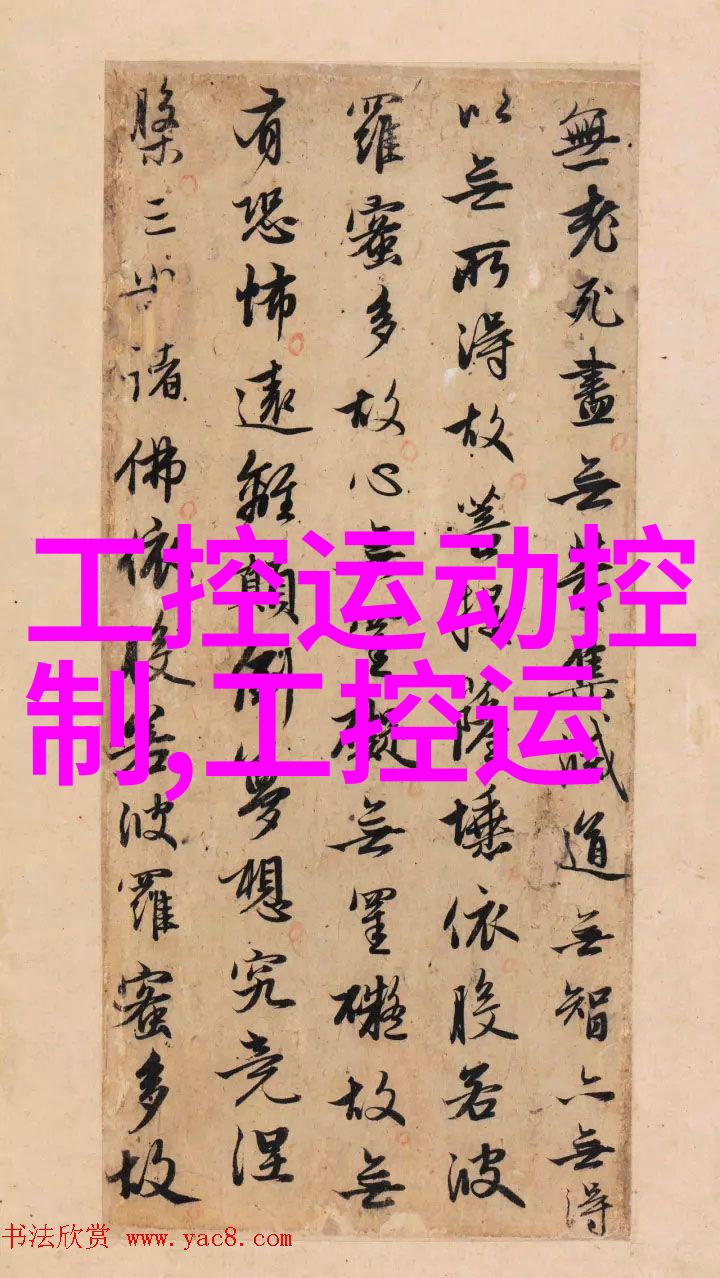 無老死盡無苦集滅道無智亦無得
以無所得故菩提薩埵依般若波
羅蜜多故心無罣礙無罣礙故無
有恐怖遠離顛倒夢想究竟涅
槃三世諸佛依般若波羅蜜多故
工控运动控
制,工控运
书法欣赏 www.yac8.com